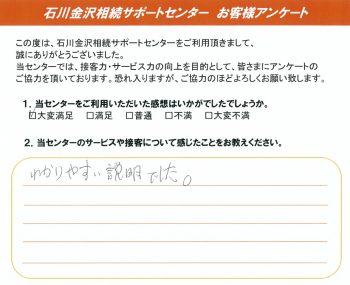 石川金沢相続サポートセンター　お客様アンケート
この度は、石川金沢相続サポートセンターをご利用頂きまして、
誠にありがとうございました。
当センターでは、接客力・サービス力の向上を目的として、皆さまにアンケートの
ご協力を頂いております。恐れ入りますが、ご協力のほどよろしくお願い致します。
1．当センターをご利用いただいた感想はいかがでしたでしょうか。
☑大変満足　□満足　□普通　□不満　□大変不満
2．当センターのサービスや接客について感じたことをお教えください。
わかりやすい説明でした。